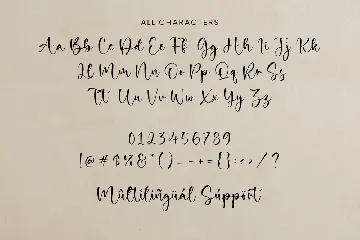 ALL CHARACTERS
Aa Bb Cc Dd Ee Ff Gg Hh Ii Jj Kk
Ll Mm Nn Oo Pp Qq Rr Ss
Tt Uu Vv Ww Xx Yy Zz
0123456789
!@#$%&*()_-+={}:;,/?
Mûltilingüál Súppört